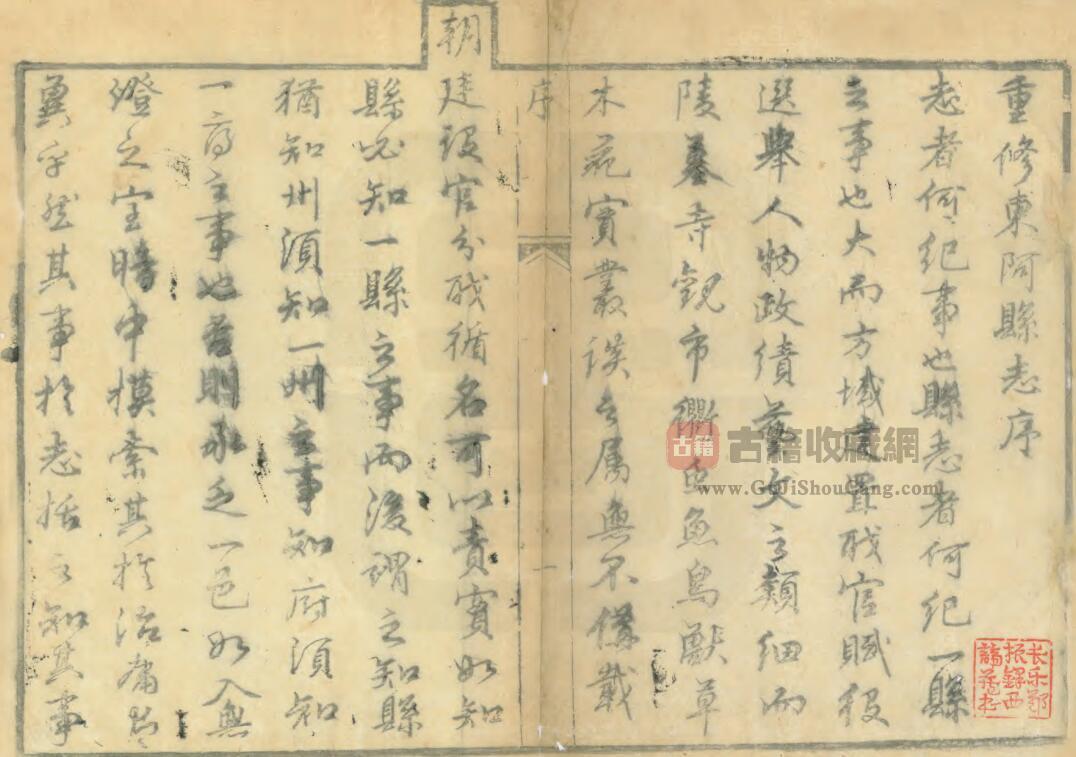 重修東阿縣志序
志者何紀事也縣志者何紀一縣
之事也大而方域建置職官賦役
選舉人物政績藝文之類細而
陵墓寺觀市衢虫魚鳥獸草
木蔬實叢談之屬無不備載
序
一
朝
廷設官分職循名可以責實如知
縣必知一縣之事而後謂之知縣
猶知州須知一州之事知府須知
一府之事也否則承乏一邑如入無
燈之室暗中摸索其於治庸
冀乎然其事於志括之知其事
长乐郑
振铎西
諦藏书
古籍
古籍收藏網
www.GuJiShouCang.com